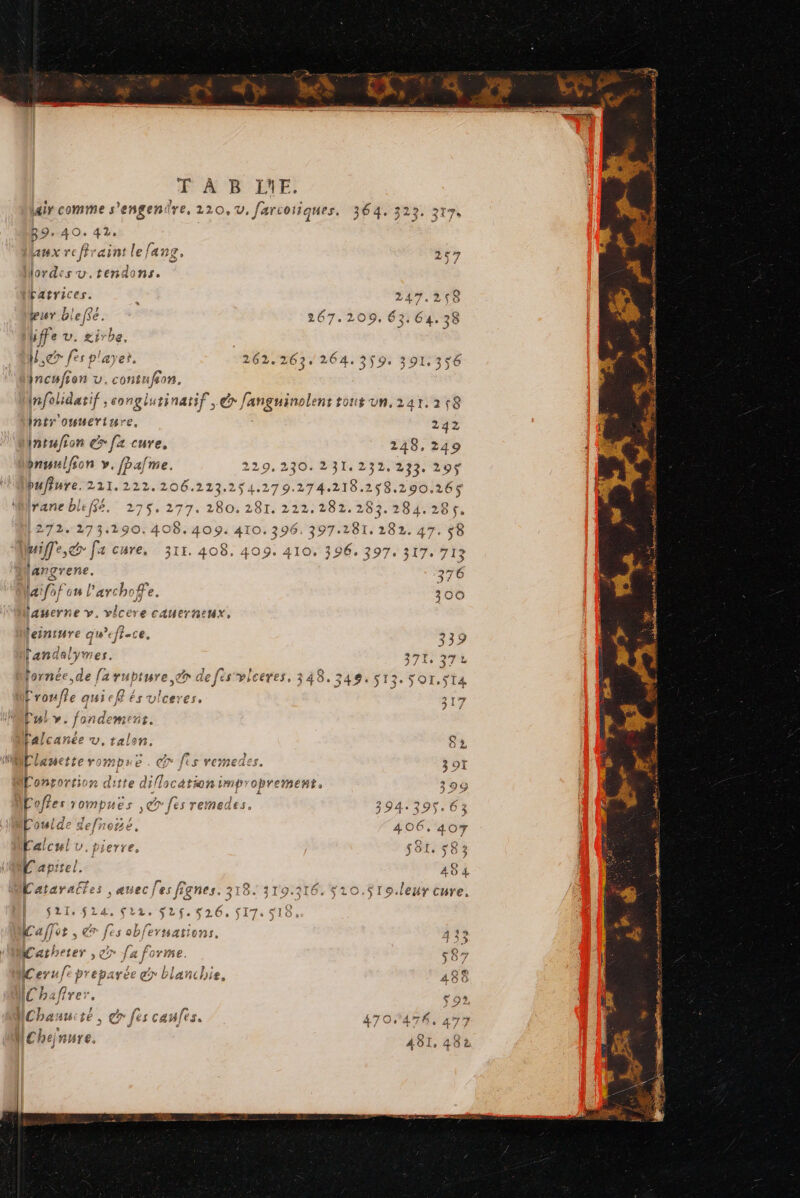 TABLE.
air comme s'engendre, 220, v. farcotiques. 364. 323. 317.
39. 40. 42.
aux reſtraint le ſang. 257
ordes v. tendons.
catrices. 247. 258
eur bleſſé. 267. 209. 63. 64. 38
iſſe v. zirbe.
l, & ſes playes. 262. 263. 264. 359. 391. 356
ncuſion v. contuſion.
nſolidatif, conglutinatif, & ſanguinolent tout vn. 241. 258
ntr'ouuerture. 242
ntuſion & ſa cure. 248. 249
onuulſion v. ſpaſme. 229. 230. 231. 232. 233. 295
ouſſure. 221. 222. 206. 223. 254. 279. 274. 218. 258. 290. 265
rane bleſſé. 275. 277. 280. 281. 222. 282. 283. 284. 285.
272. 273. 290. 408. 409. 410. 396. 397. 281. 282. 47. 58
uiſſe, & ſa cure. 311. 408. 409. 410. 396. 397. 317. 713
angrene. 376
aiſoſ ou l'archoſſe. 300
auerne v. vlcere cauerneux.
einture qu'eſt-ce. 339
andalymes. 371. 372
ornée, de ſa rupture, & de ſes vlceres. 348. 349. 513. 501. 514
rouſte qui eſt és vlceres. 317
ul v. fondement.
alcanée v. talon. 82
Clauette rompuë. & ſes remedes. 391
Contortion ditte diſlocation improprement. 399
Coſtes rompuës, & ſes remedes. 394. 395. 63
Coulde deſnoüé. 406. 407
Calcul v. pierre. 581. 583
Capitel. 484
Cataractes, auec ſes ſignes. 318. 319. 316. 520. 519. leur cure.
521. 524. 522. 525. 526. 517. 518.
Caſſot, & ſes obſeruations. 433
Catheter, & ſa forme. 587
Ceruſe preparée & blanchie. 488
Chaſtrer. 592
Chauueté, & ſes cauſes. 470. 476. 477
Chejnure. 481. 482